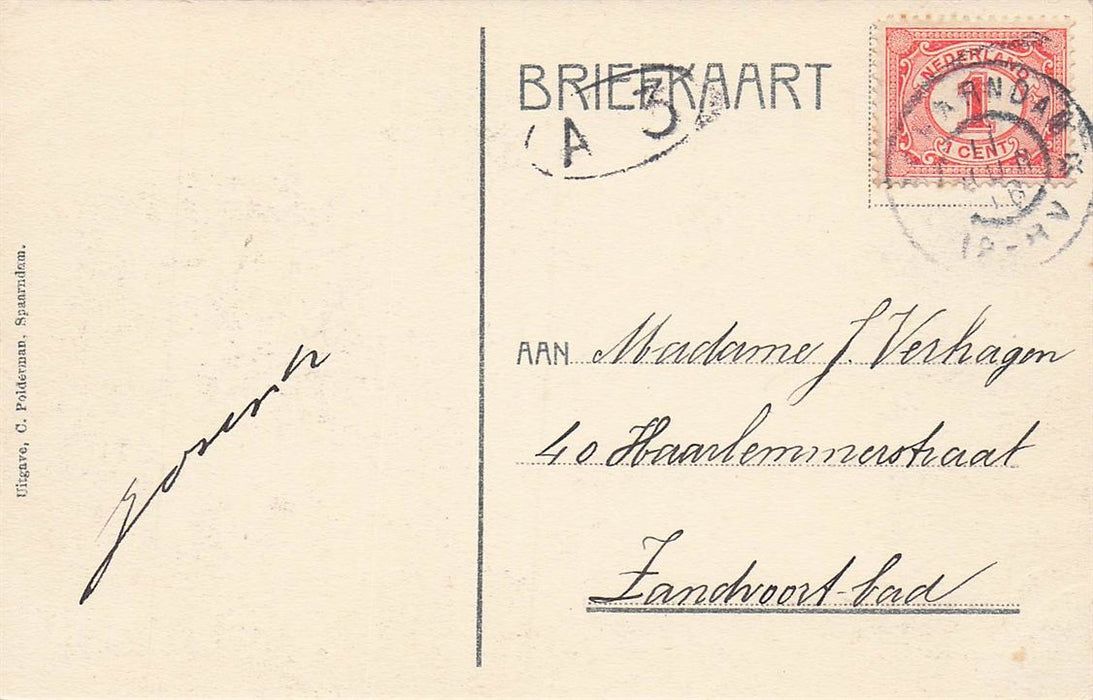 BRIEFKAART
A 3
NEDERLAND
1
1 CENT
AAN Madame J. Verhagen
40 Haarlemmerstraat
Zandvoort-bad
Uitgave, C. Polderman. Spaarndam.